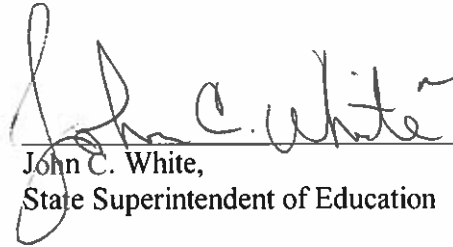 John C. White
John C. White,
State Superintendent of Education